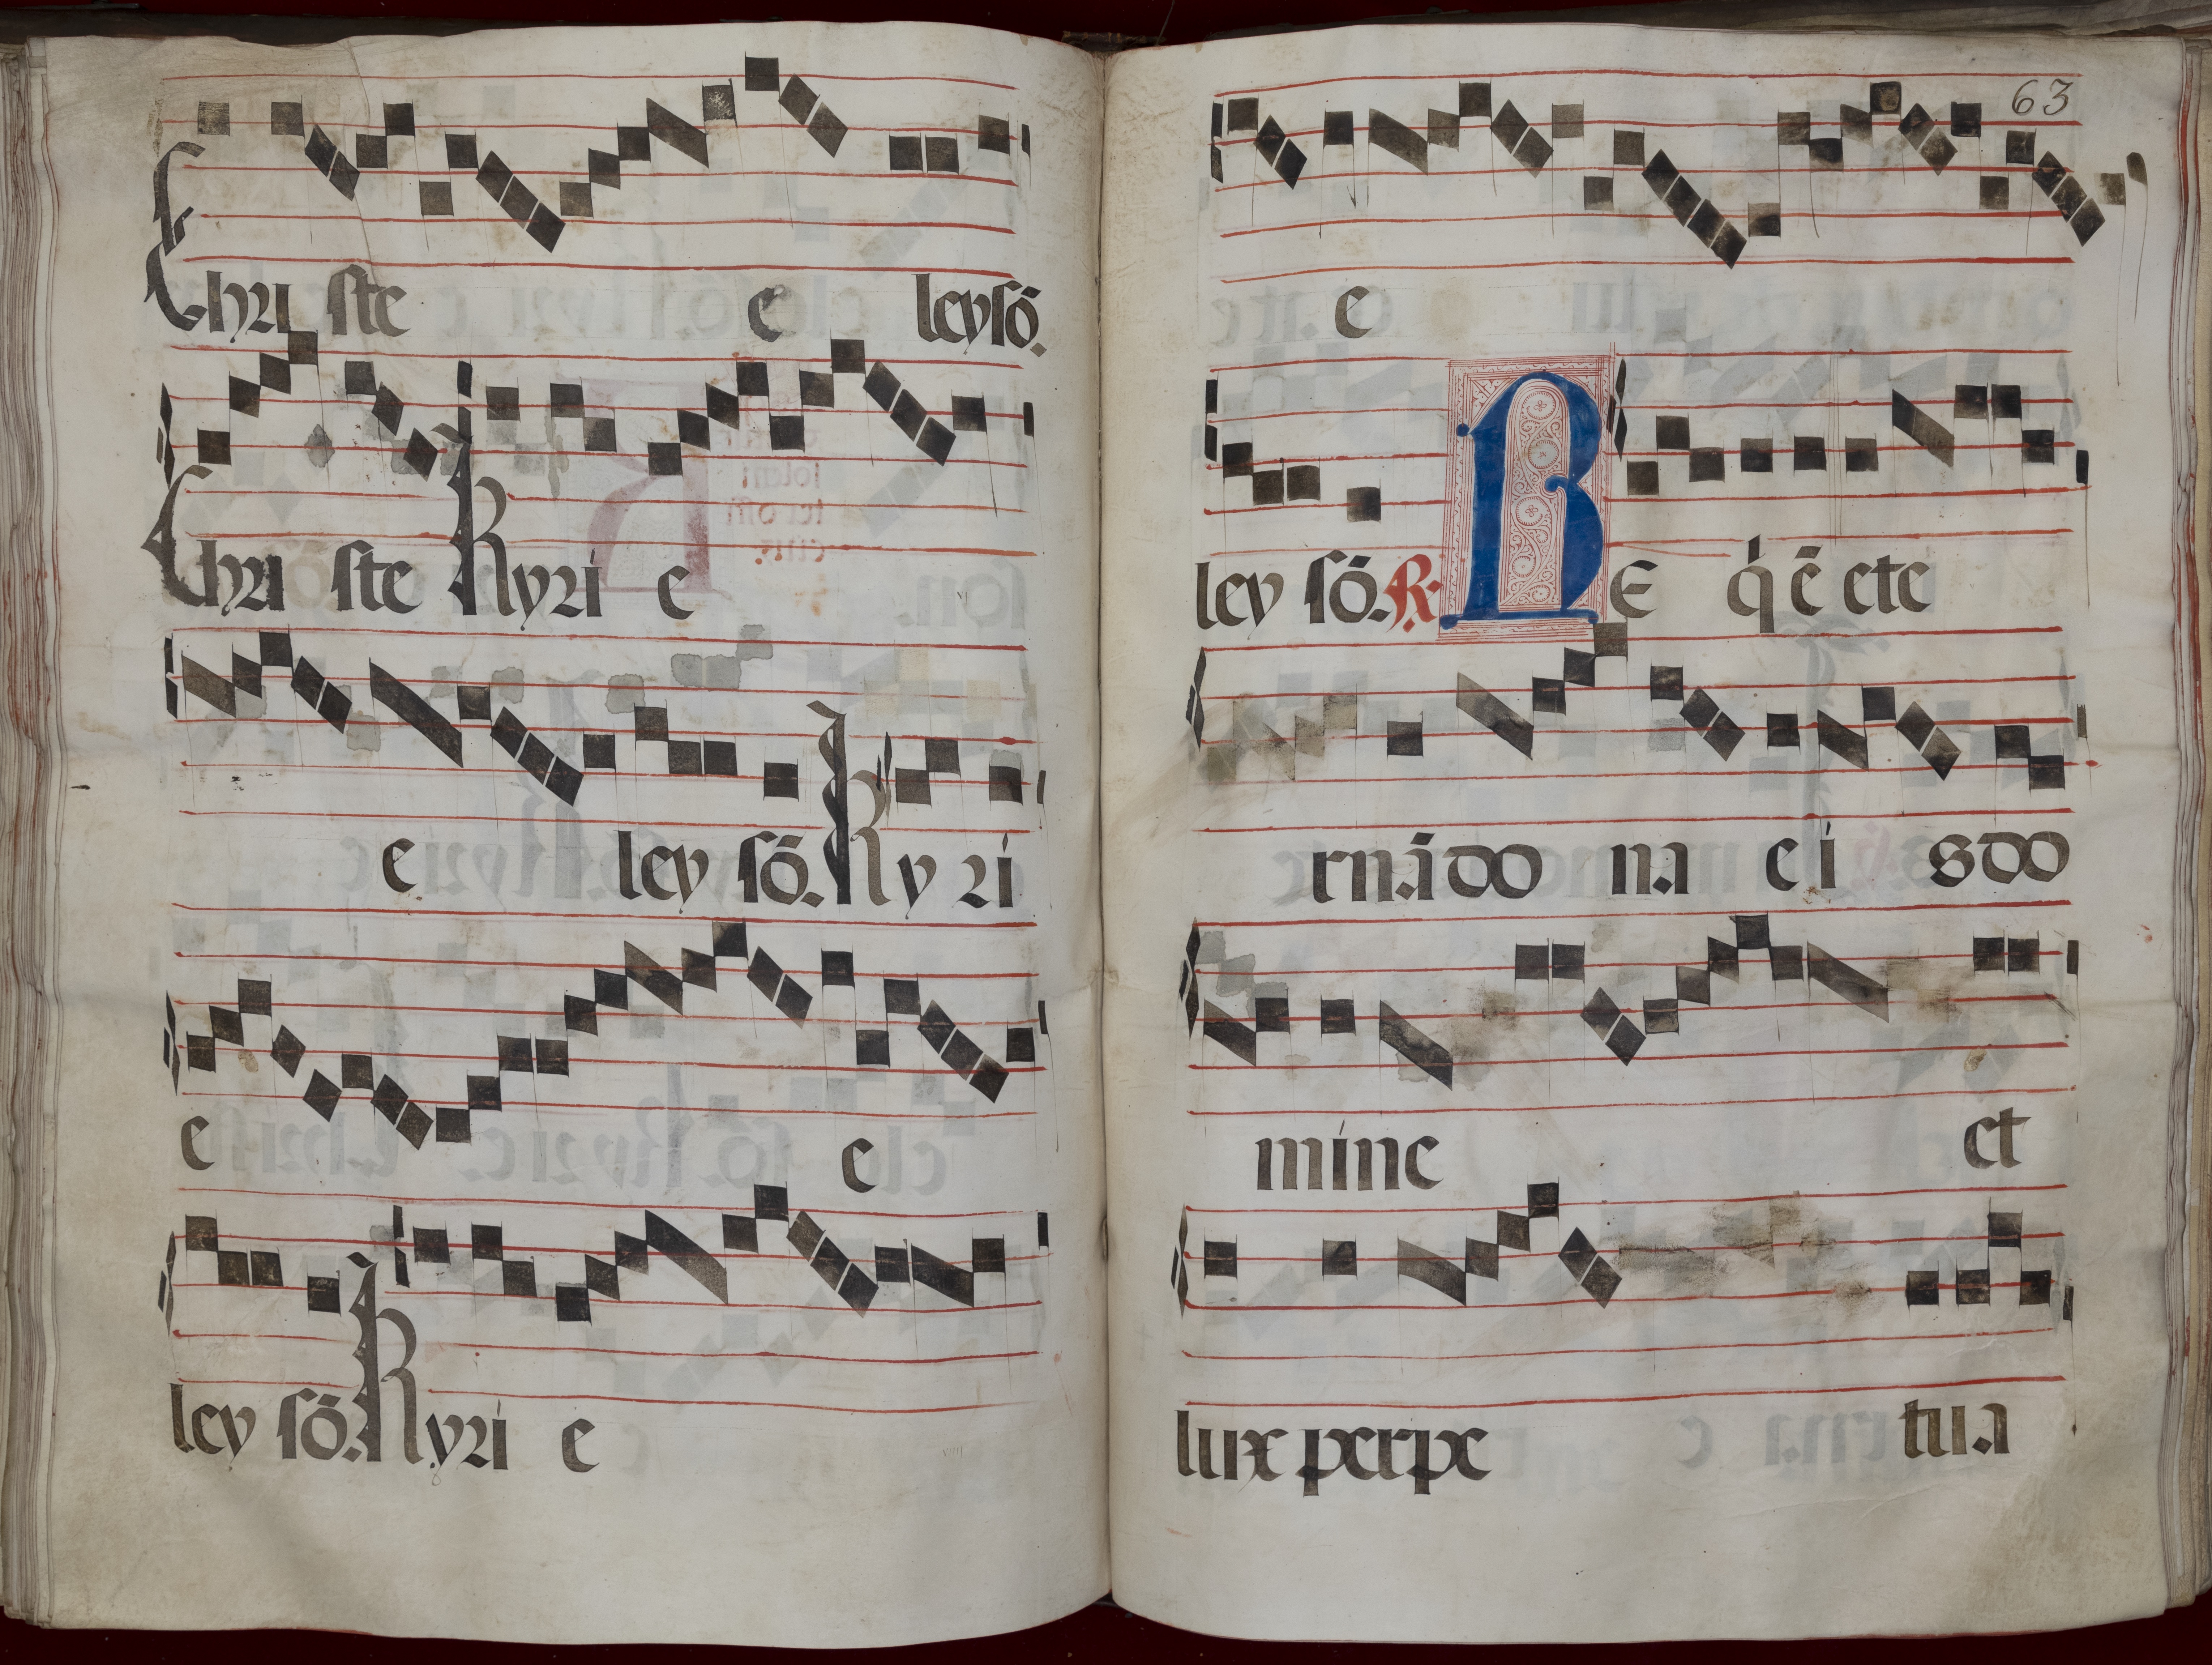 Chri ste e leysō.
Chri ste Kyri e
e ley sō. Ky ri
e e
ley sō. Kyri e
63
e
ley sō. R. RE q̄ ē ete
rnā do na ei s do
mine et
lux perpe tua